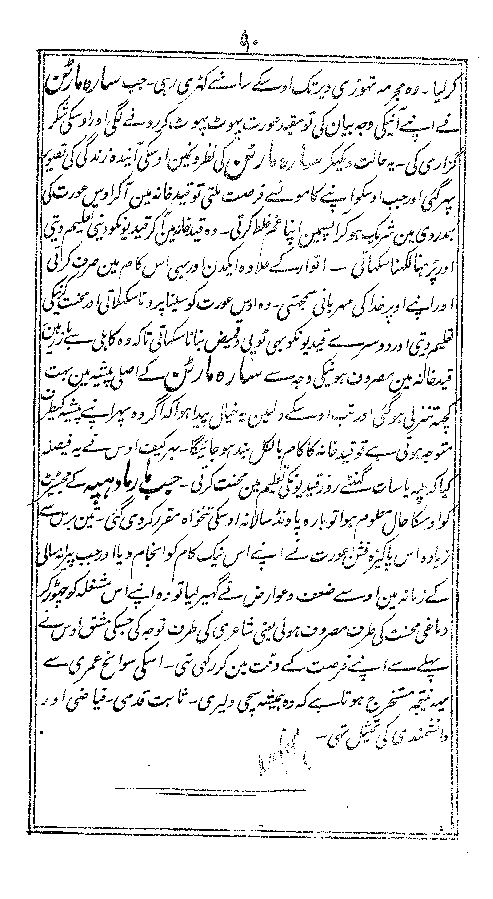 ۹۰
کر لیا ۔ وہ مجرمہ تہوڑی دیر تک اوسکے سامنے کہڑی رہی ۔ جب سارہ مارٹن
نے اپنے آنیکی وجہ بیان کی تو مقید عورت پہوٹ پہوٹ کر رونے لگی اور اوسکی شکر
گزاری کی ۔ یہ حالت دیکہکر سارہ مارٹن کی نظرونمین اوسکی آیندہ زندگی کی تصویر
پہر گئی اور جب اوسکو اپنے کامونسے فرصت ملتی تو قید خانہ مین آکر اوس عورت کی
ہمدردی مین شریک ہو کر آپسمین اپنا غم غلط کرتی ۔ وہ قید خانہ مین آکر قیدیونکو دینی تعلیم دیتی
اور پڑہنا لکہنا سکہاتی ۔ اتوار کے علاوہ ایکدن اور بہی اس کام مین صرف کرتی
اور اپنے اوپر خدا کی مہربانی سمجہتی ۔ وہ اوس عورت کو سینا پرونا سکہلاتی اور محنت کرنیکی
تعلیم دیتی اور دوسرے قیدیونکو بہی ٹوپی و قمیض بنانا سکہاتی تاکہ وہ کاہلی سے باز رہین
قید خانہ مین مصروف ہونیکی وجہ سے سارہ مارٹن کے اصلی پیشہ مین بہت
کچہہ تنزلی ہوگئی اور اوسکے دلمین یہ خیال پیدا ہوا کہ اگر وہ پہر اپنے پیشہ کیطرف
متوجہ ہوتی ہے تو قید خانہ کا کام بالکل بند ہو جائیگا ۔ بہرکیف اوس نے یہ فیصلہ
کیا کہ چہہ یا سات گہنٹے روز قیدیونکی تعلیم مین محنت کرتی ۔ جب یارمادہیہ کے مجسٹریٹ
کو اوسکا حال معلوم ہوا تو بارہ پاونڈ سالانہ اوسکی تنخواہ مقرر کردی گئی ۔ تین برس سے
زیادہ اس پاکیزہ منش عورت نے اپنے اس نیک کام کو انجام دیا اور جب پیرانہ سالی
کے زمانہ مین اوسے ضعف و عوارض نے گہیر لیا تو وہ اپنے اس مشغلہ کو چہوڑ کر
دماغی محنت کی طرف مصروف ہوئی یعنی شاعری کی طرف توجہ کی جسکی مشق اوس نے
پہلے سے اپنے فرصت کے وقت مین کر رکہی تہی ۔ اسکی سوانح عمری سے
یہہ نتیجہ مستخرج ہوتا ہے کہ وہ ہمیشہ سچی دلیری ۔ ثابت قدمی ۔ فیاضی اور
دانشمندی کی تمثیل تہی ۔